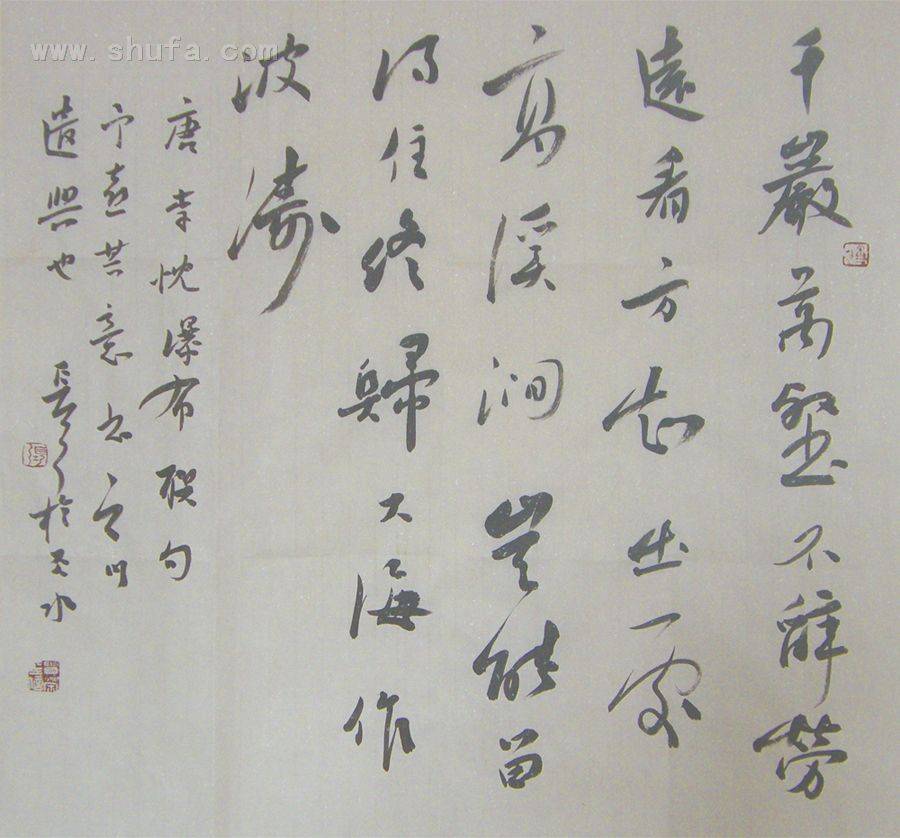 千巖萬壑不辭勞
遠看方知出處
高溪澗豈能留
得住終歸大海作
波濤
唐李忱瀑布联句
予喜其意书之以
遣興也 於天水
www.shufa.com